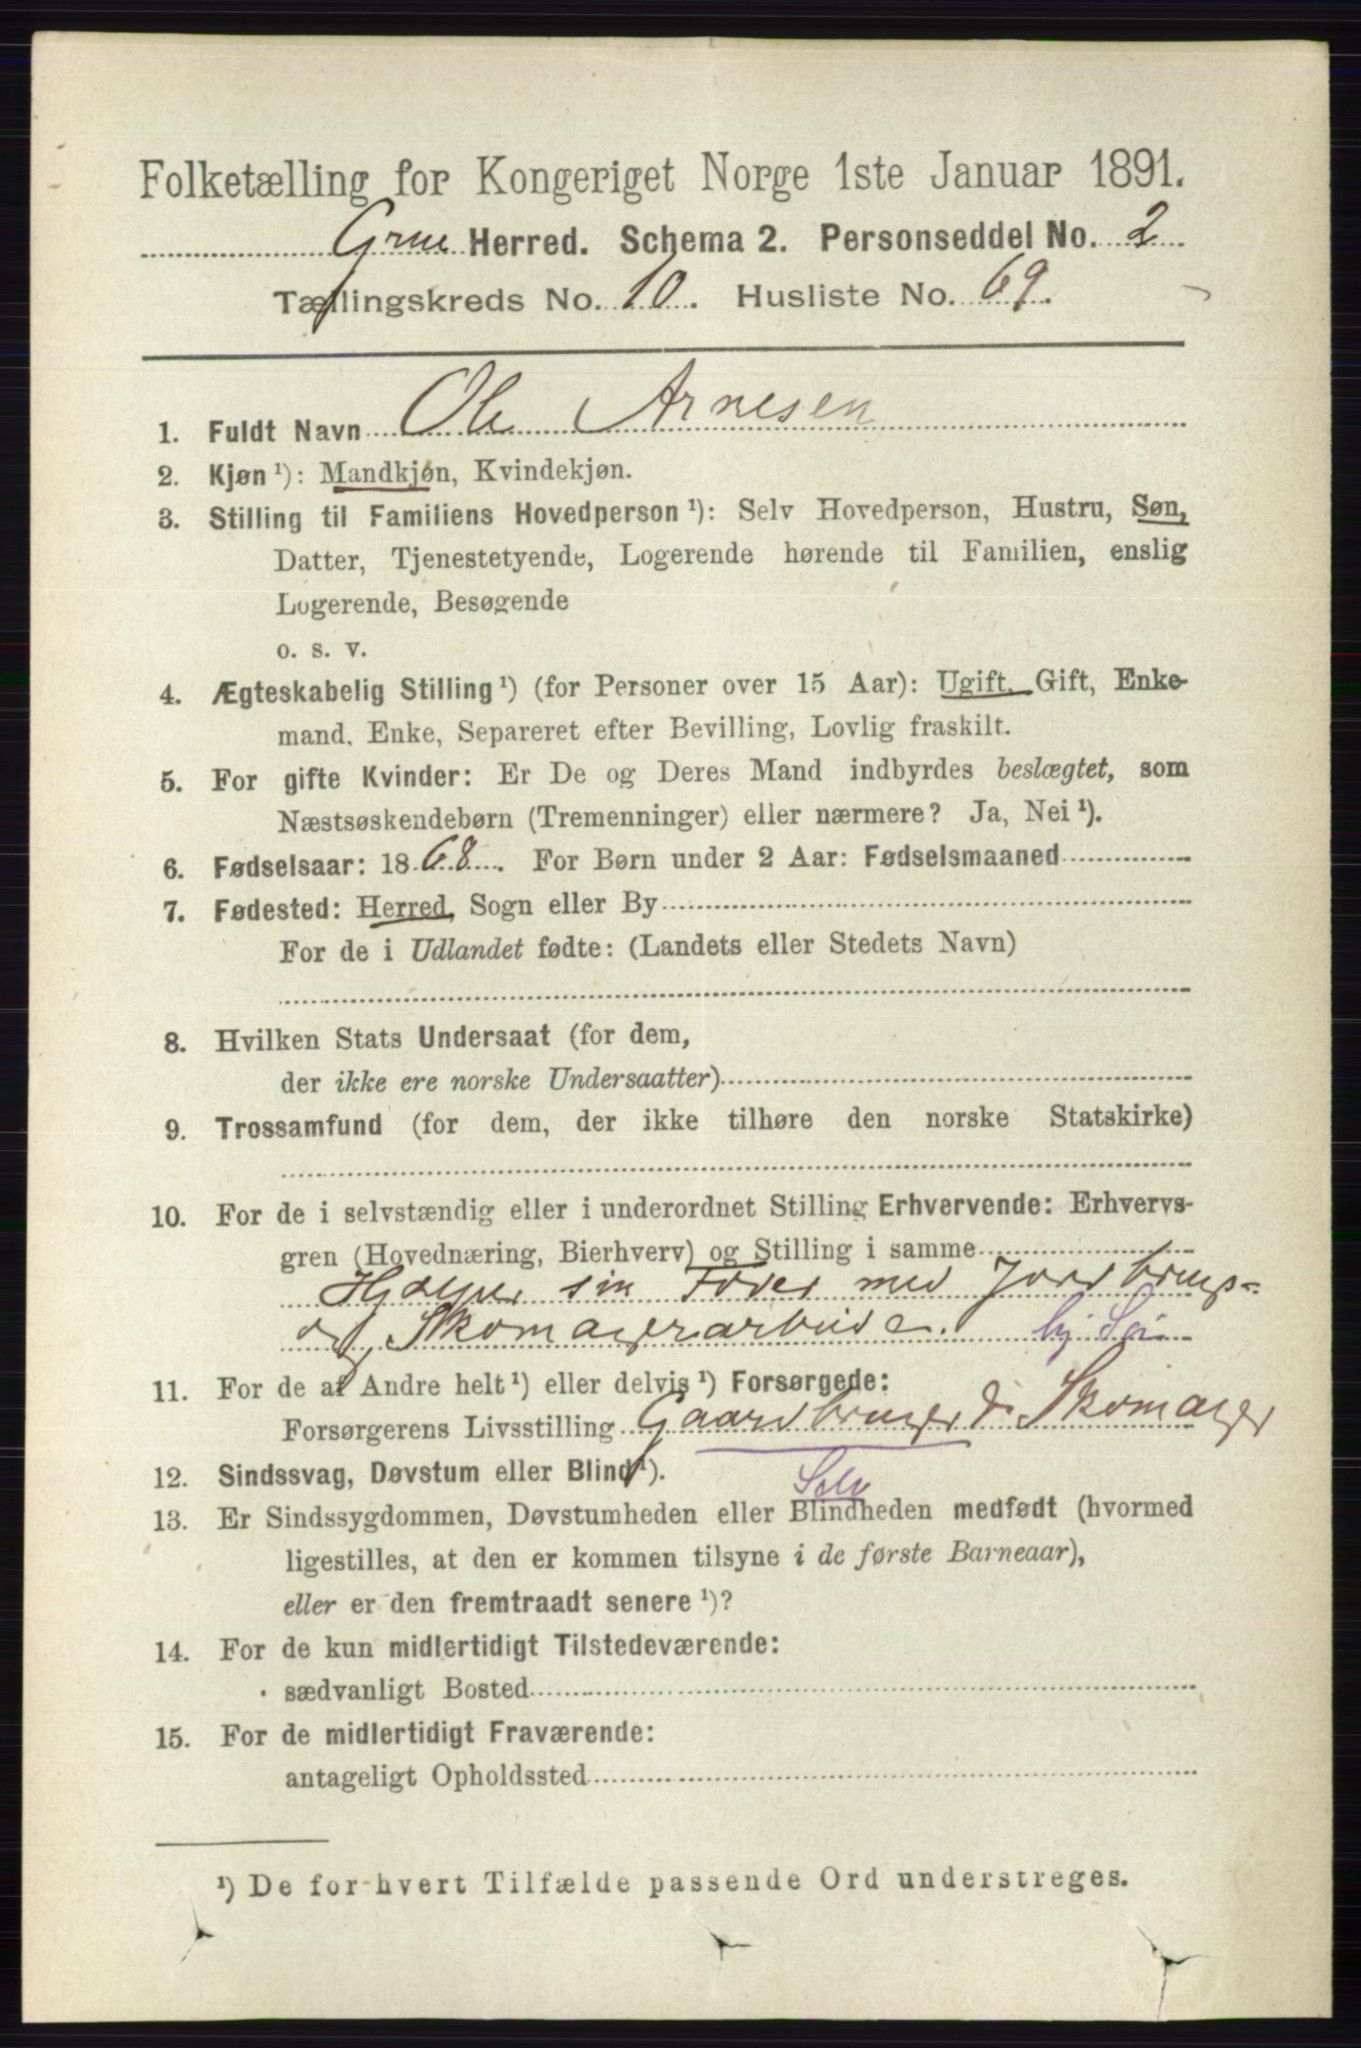 Folketælling for Kongeriget Norge 1ste Januar 1891.
Grue Herred. Schema 2. Personseddel No. 2
Tællingskreds No. 10. Husliste No. 69.
1. Fuldt Navn Ole Arnesen
2. Kjøn ¹): Mandkjøn, Kvindekjøn.
3. Stilling til Familiens Hovedperson ¹): Selv Hovedperson, Hustru, Søn,
Datter, Tjenestetyende, Logerende hørende til Familien, enslig
Logerende, Besøgende
o. s. v.
4. Ægteskabelig Stilling ¹) (for Personer over 15 Aar): Ugift, Gift, Enke-
mand, Enke, Separeret efter Bevilling, Lovlig fraskilt.
5. For gifte Kvinder: Er De og Deres Mand indbyrdes beslægtet, som
Næstsøskendebørn (Tremenninger) eller nærmere? Ja, Nei ¹).
6. Fødselsaar: 1868. For Børn under 2 Aar: Fødselsmaaned
7. Fødested: Herred, Sogn eller By
For de i Udlandet fødte: (Landets eller Stedets Navn)
8. Hvilken Stats Undersaat (for dem,
der ikke ere norske Undersaatter)
9. Trossamfund (for dem, der ikke tilhøre den norske Statskirke)
10. For de i selvstændig eller i underordnet Stilling Erhvervende: Erhvervs-
gren (Hovednæring, Bierhverv) og Stilling i samme
Hjælper sin Fader med Jordbrug-
og Skomagerarbeide. hj
11. For de af Andre helt ¹) eller delvis ¹) Forsørgede:
Forsørgerens Livsstilling Gaardbruger & Skomager
12. Sindssvag, Døvstum eller Blind ¹).
Selv
13. Er Sindssygdommen, Døvstumheden eller Blindheden medfødt (hvormed
ligestilles, at den er kommen tilsyne i de første Barneaar),
eller er den fremtraadt senere ¹)?
14. For de kun midlertidigt Tilstedeværende:
sædvanligt Bosted
15. For de midlertidigt Fraværende:
antageligt Opholdssted
¹) De for hvert Tilfælde passende Ord understreges.